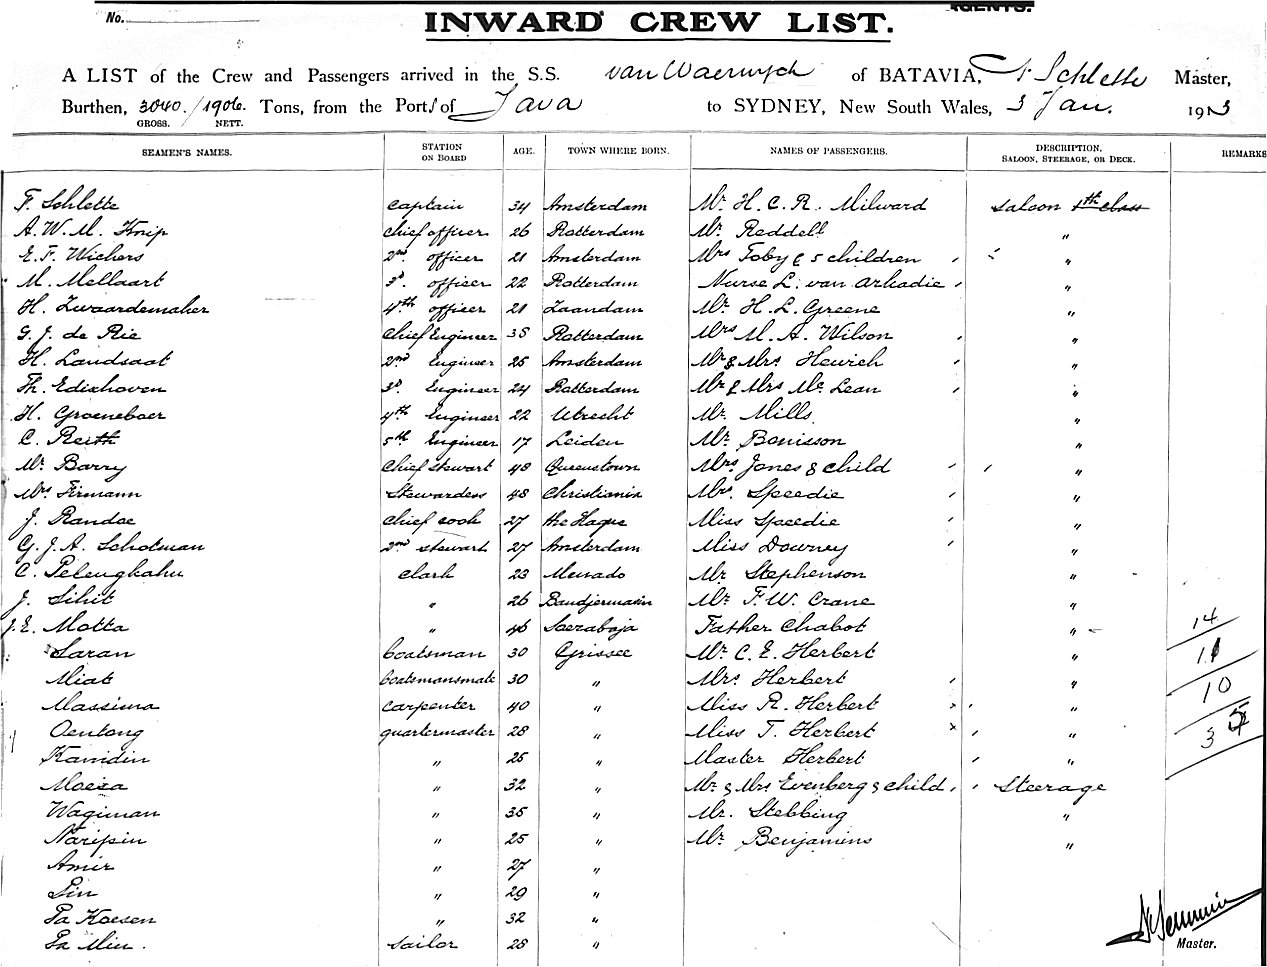 No.
AGENTS.
INWARD CREW LIST.
A LIST of the Crew and Passengers arrived in the S.S. van Waerwyck of BATAVIA, F. Schlette Master,
Burthen, 3040 / 1906 Tons, from the Port of Java to SYDNEY, New South Wales, 3 Jan. 1913
GROSS. NETT.
SEAMEN'S NAMES. STATION ON BOARD AGE. TOWN WHERE BORN. NAMES OF PASSENGERS. DESCRIPTION, SALOON, STEERAGE, OR DECK. REMARKS
F. Schlette captain 34 Amsterdam Mr. H. C. R. Milward Saloon 1th class
A. W. M. Knip chief officer 26 Rotterdam Mr. Reddell "
E. F. Wichers 2nd officer 21 Amsterdam Mrs Toby & 5 children "
M. Mellaart 3d. officer 22 Rotterdam Nurse L. van Arkadie "
H. Zwaardemaker 4th officer 21 Zaandam Mr. H. L. Greene "
G. J. de Rie Chief Engineer 35 Rotterdam Mrs M. A. Wilson "
H. Landsaat 2nd Engineer 25 Amsterdam Mr & Mrs Hewich "
Th. Edixhoven 3d. Engineer 24 Rotterdam Mr & Mrs Mc Lean "
H. Groeneboer 4th Engineer 22 Utrecht Mr. Mills "
C. Reith 5th Engineer 17 Leiden Mr Bonisson "
Mr Barry Chief stewart 48 Queenstown Mrs Jones & child "
Mrs Firmann Stewardess 48 Christiania Mrs. Speedie "
J. Randoe chief cook 27 the Hague Miss Speedie "
G. J. A. Schotman 2nd stewart 27 Amsterdam Miss Downey "
C. Pelengkahu clark 23 Menado Mr Stephenson "
J. Sihit " 26 Bandjermasin Mr. F. W. Crane "
J. E. Motta " 46 Soerabaja Father Chabot " 14
Saran boatsman 30 Grissee Mr. C. E. Herbert " 11
Miat boatsmansmate 30 " Mrs Herbert " 10
Massima carpenter 40 " Miss R. Herbert "
Oentong quartermaster 28 " Miss T. Herbert " 3
Kamidin " 25 " Master Herbert "
Moesa " 32 " Mr & Mrs Evenberg & child Steerage
Wagiman " 35 " Mr. Stebbing "
Naripin " 25 " Mr Benjamins "
Amir " 27 "
Sin " 29 "
Pa Koesen " 32 "
Pa Min. sailor 28 "
Master.